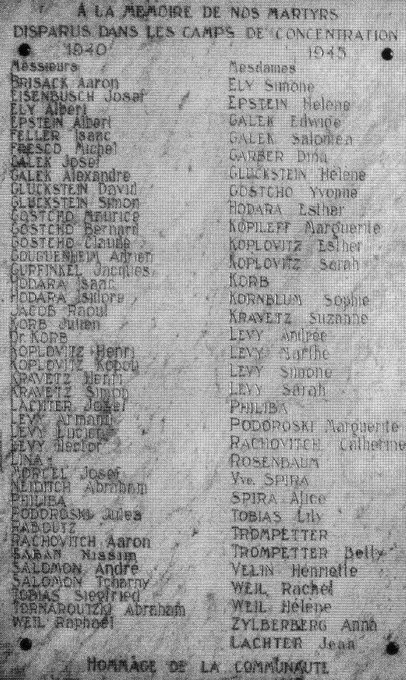 À LA MEMOIRE DE NOS MARTYRS
DISPARUS DANS LES CAMPS DE CONCENTRATION
1940 1945
Messieurs
BRISACK Aaron
EISENBUSCH Josef
ELY Albert
EPSTEIN Albert
FELLER Isaac
FRESCO Michel
GALEK Josef
GALEK Alexandre
GLUCKSTEIN David
GLUCKSTEIN Simon
GOSTCHO Maurice
GOSTCHO Bernard
GOSTCHO Claude
GOUGUENHEIM Adrien
GURFINKEL Jacques
HODARA Isaac
HODARA Isidore
JACOB Raoul
KORB Julien
Dr. KORB
KOPLOVITZ Henri
KOPLOVITZ
KRAVETZ Henri
KRAVETZ Simon
LACHTER Josef
LEVY Armand
LEVY Lucien
LEVY Hector
LINA
MORCEL Josef
NEIDITCH Abraham
PHILIBA
PODOROSKI Jules
RABOUTZ
RACHOVITCH Aaron
SABAN Nissim
SALOMON André
SALOMON Tcharny
TOBIAS Siegfried
TORNAROUTZKI Abraham
WEIL Raphaël
Mesdames
ELY Simone
EPSTEIN Hélène
GALEK Edwige
GALEK Salomea
GARBER Dina
GLUCKSTEIN Hélène
GOSTCHO Yvonne
HODARA Esther
KOPILEFF Marguerite
KOPLOVITZ Esther
KOPLOVITZ Sarah
KORB
KORNBLUM Sophie
KRAVETZ Suzanne
LEVY Andrée
LEVY Marthe
LEVY Simone
LEVY Sarah
PHILIBA
PODOROSKI Marguerite
RACHOVITCH Catherine
ROSENBAUM
Vve. SPIRA
SPIRA Alice
TOBIAS Lily
TROMPETTER
TROMPETTER Betty
VELIN Henriette
WEIL Rachel
WEIL Hélène
ZYLBERBERG Anna
LACHTER Jean
HOMMAGE DE LA COMMUNAUTE